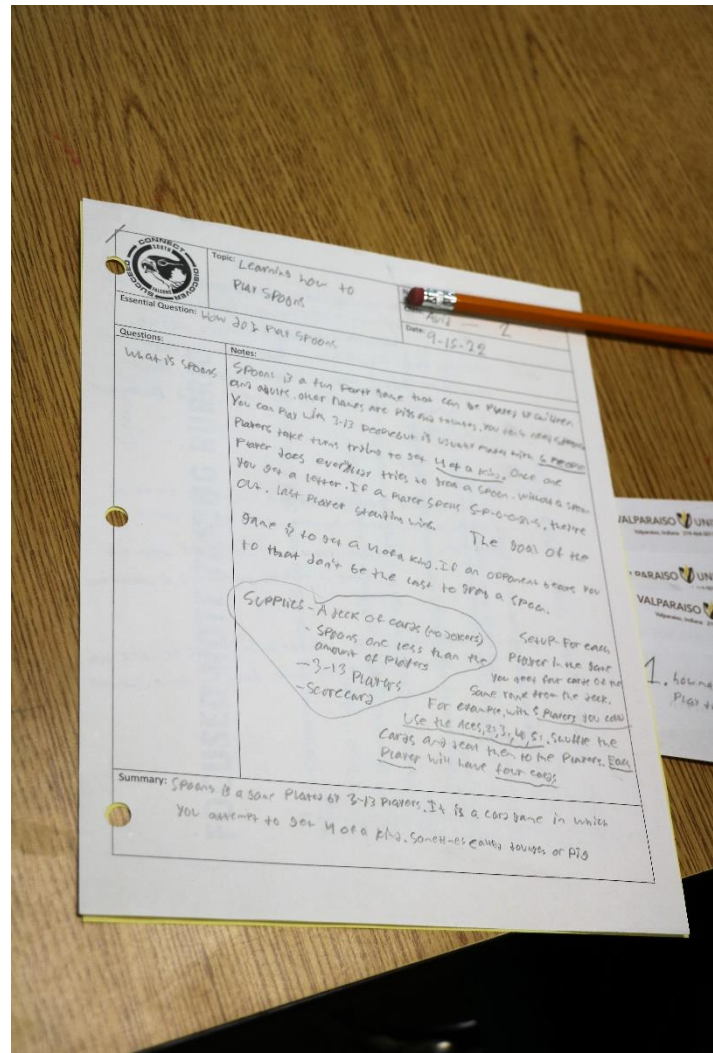 CONNECT
DISCOVER
SUCCEED
SOUTH
Topic: Learning how to
Play Spoons
Essential Question: How do I Play Spoons
Avid 2
Date: 9-15-22
Questions:
What is spoons
Notes:
Spoons is a fun party game that can be played by children
and adults. other names are pigs and tounges. You
You can play with 3-13 people but is usually played with 5 people
Players take turns trying to get 4 of a king. Once one
Player does everybody tries to grab a spoon. without a spoon
You get a letter. If a player spells S-P-O-O-N-S, they're
out. Last player standing wins. The goal of the
game is to get a 4 of a king. If an opponent beats you
to that don't be the last to grab a spoon.
Supplies - A deck of cards (no jokers)
- Spoons one less than the
amount of players
- 3-13 Players
- Scorecard
Setup- For each
Player in the game
You need four cards of the
same rank from the deck.
For example, with 5 players you could
Use the Aces, 2s, 3s, 4s, 5s. Shuffle the
cards and deal them to the players. Each
Player will have four cards
Summary: Spoons is a game played by 3-13 players. It is a card game in which
You attempt to get 4 of a king. Sometimes called tounges or pig
VALPARAISO UNI
Valparaiso, Indiana
PARAISO UNI
VALPARAISO
Valparaiso, Indiana
1. how
Play